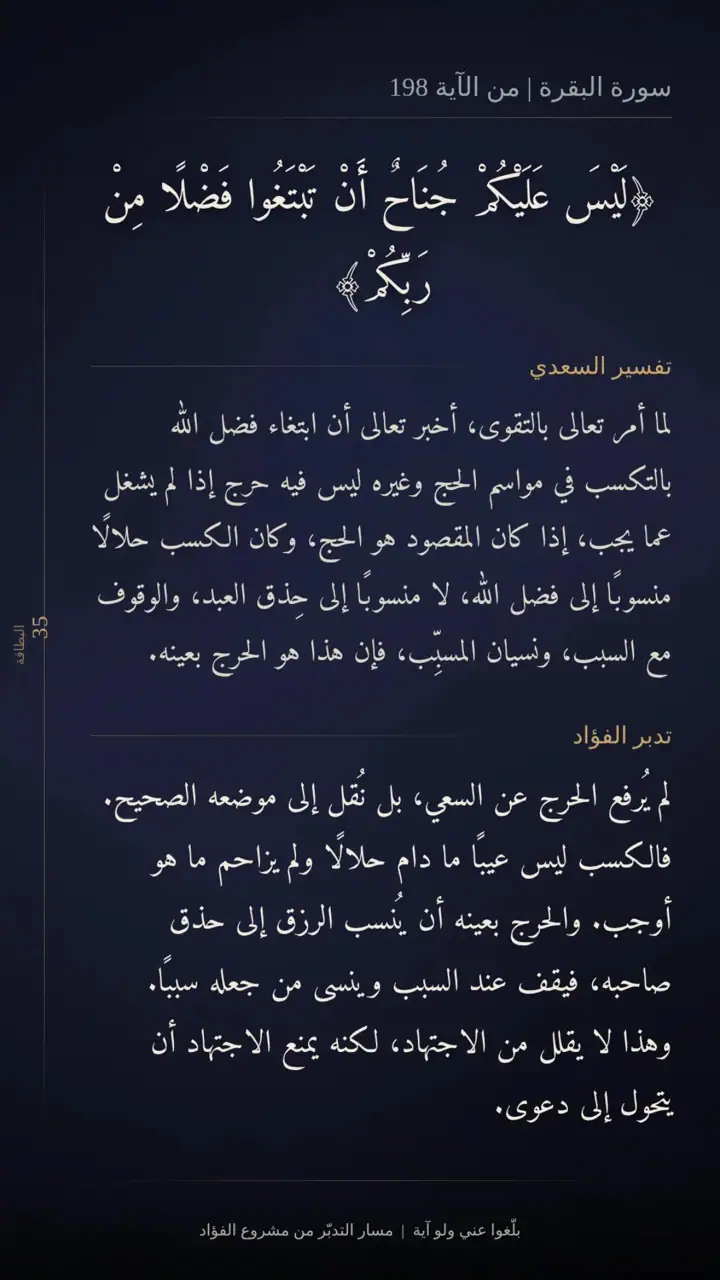 سورة البقرة | من الآية 198
﴿لَيْسَ عَلَيْكُمْ جُنَاحٌ أَنْ تَبْتَغُوا فَضْلًا مِنْ
رَبِّكُمْ﴾
تفسير السعدي
لما أمر تعالى بالتقوى، أخبر تعالى أن ابتغاء فضل الله
بالتكسب في مواسم الحج وغيره ليس فيه حرج إذا لم يشغل
عما يجب، إذا كان المقصود هو الحج، وكان الكسب حلالًا
منسوبًا إلى فضل الله، لا منسوبًا إلى حِذق العبد، والوقوف
مع السبب، ونسيان المسبِّب، فإن هذا هو الحرج بعينه.
تدبر الفؤاد
لم يُرفع الحرج عن السعي، بل نُقل إلى موضعه الصحيح.
فالكسب ليس عيبًا ما دام حلالًا ولم يزاحم ما هو
أوجب. والحرج بعينه أن يُنسب الرزق إلى حذق
صاحبه، فيقف عند السبب وينسى من جعله سببًا.
وهذا لا يقلل من الاجتهاد، لكنه يمنع الاجتهاد أن
يتحول إلى دعوى.
البطاقة
35
بلّغوا عني ولو آية | مسار التدبّر من مشروع الفؤاد